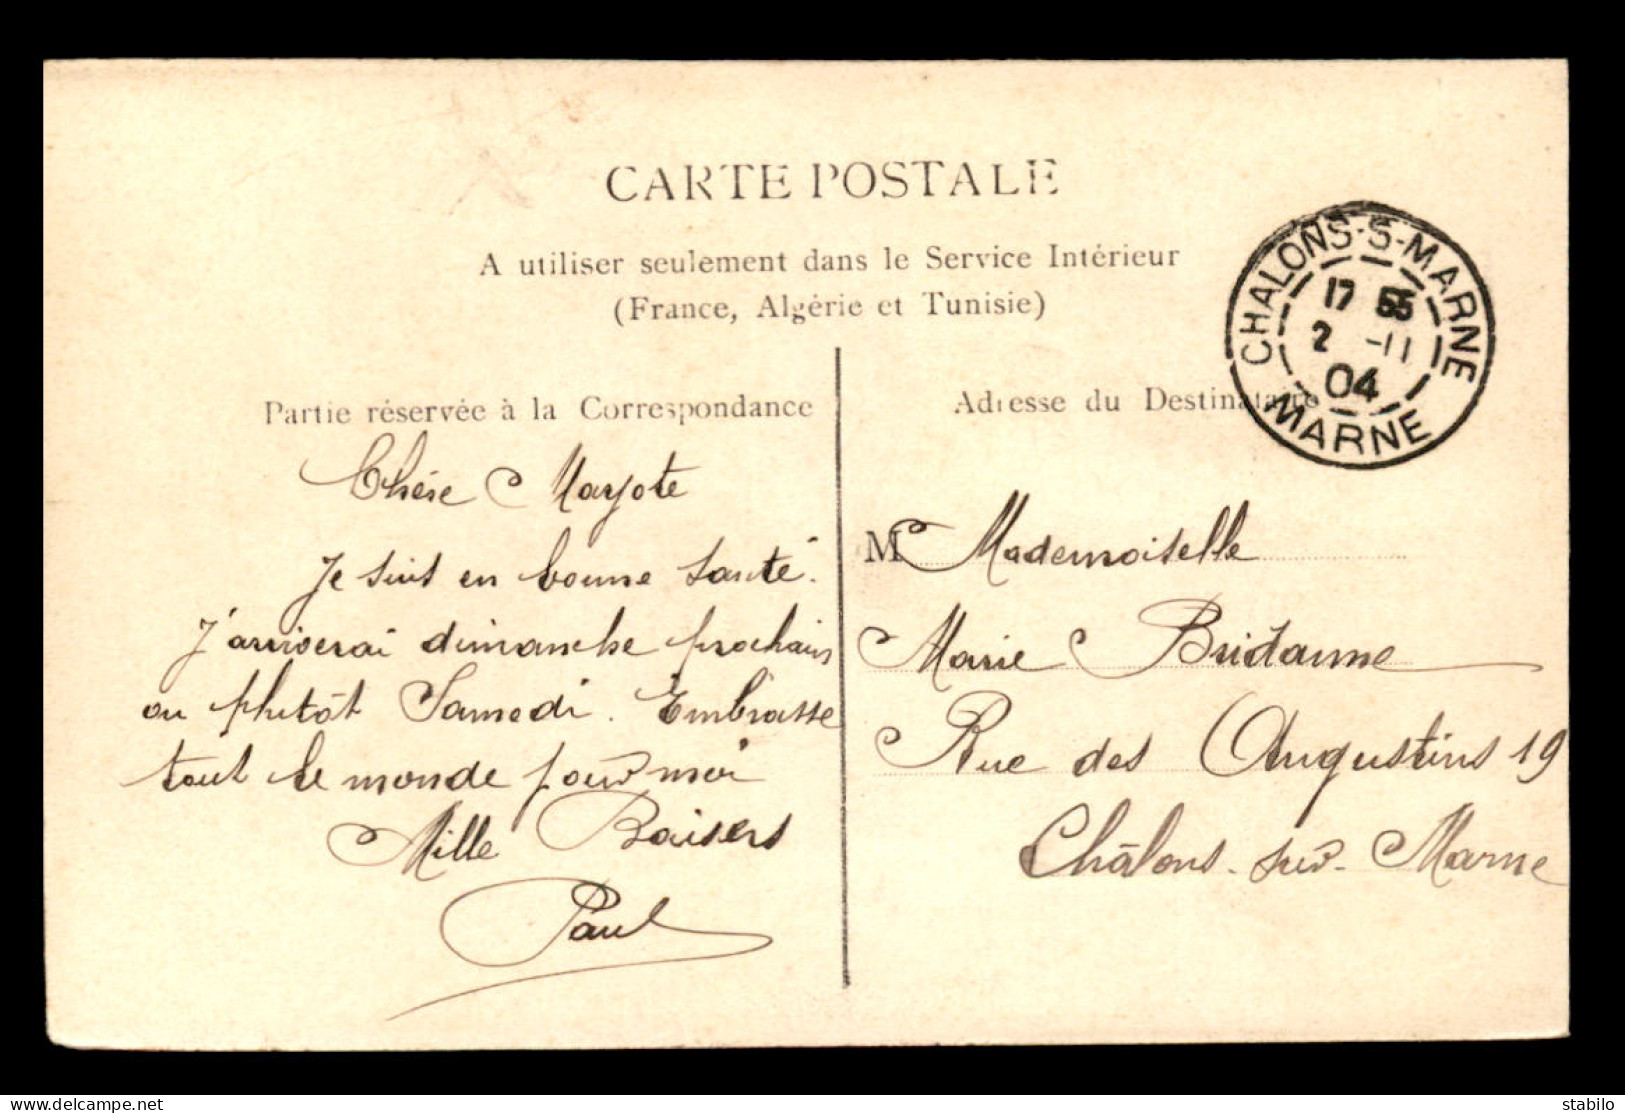 CARTE POSTALE
A utiliser seulement dans le Service Intérieur
(France, Algérie et Tunisie)
CHALONS-S-MARNE
17 55
2 -11
04
MARNE
Partie réservée à la Correspondance
Chère Mayote
Je suis en bonne santé.
J'arriverai dimanche prochain
ou plutôt Samedi. Embrasse
tout le monde pour moi
Mille Baisers
Paul
Adresse du Destinataire
M Mademoiselle
Marie
Rue des Augustins 19
Châlons-sur-Marne
https://www.delcampe.net
stabilo